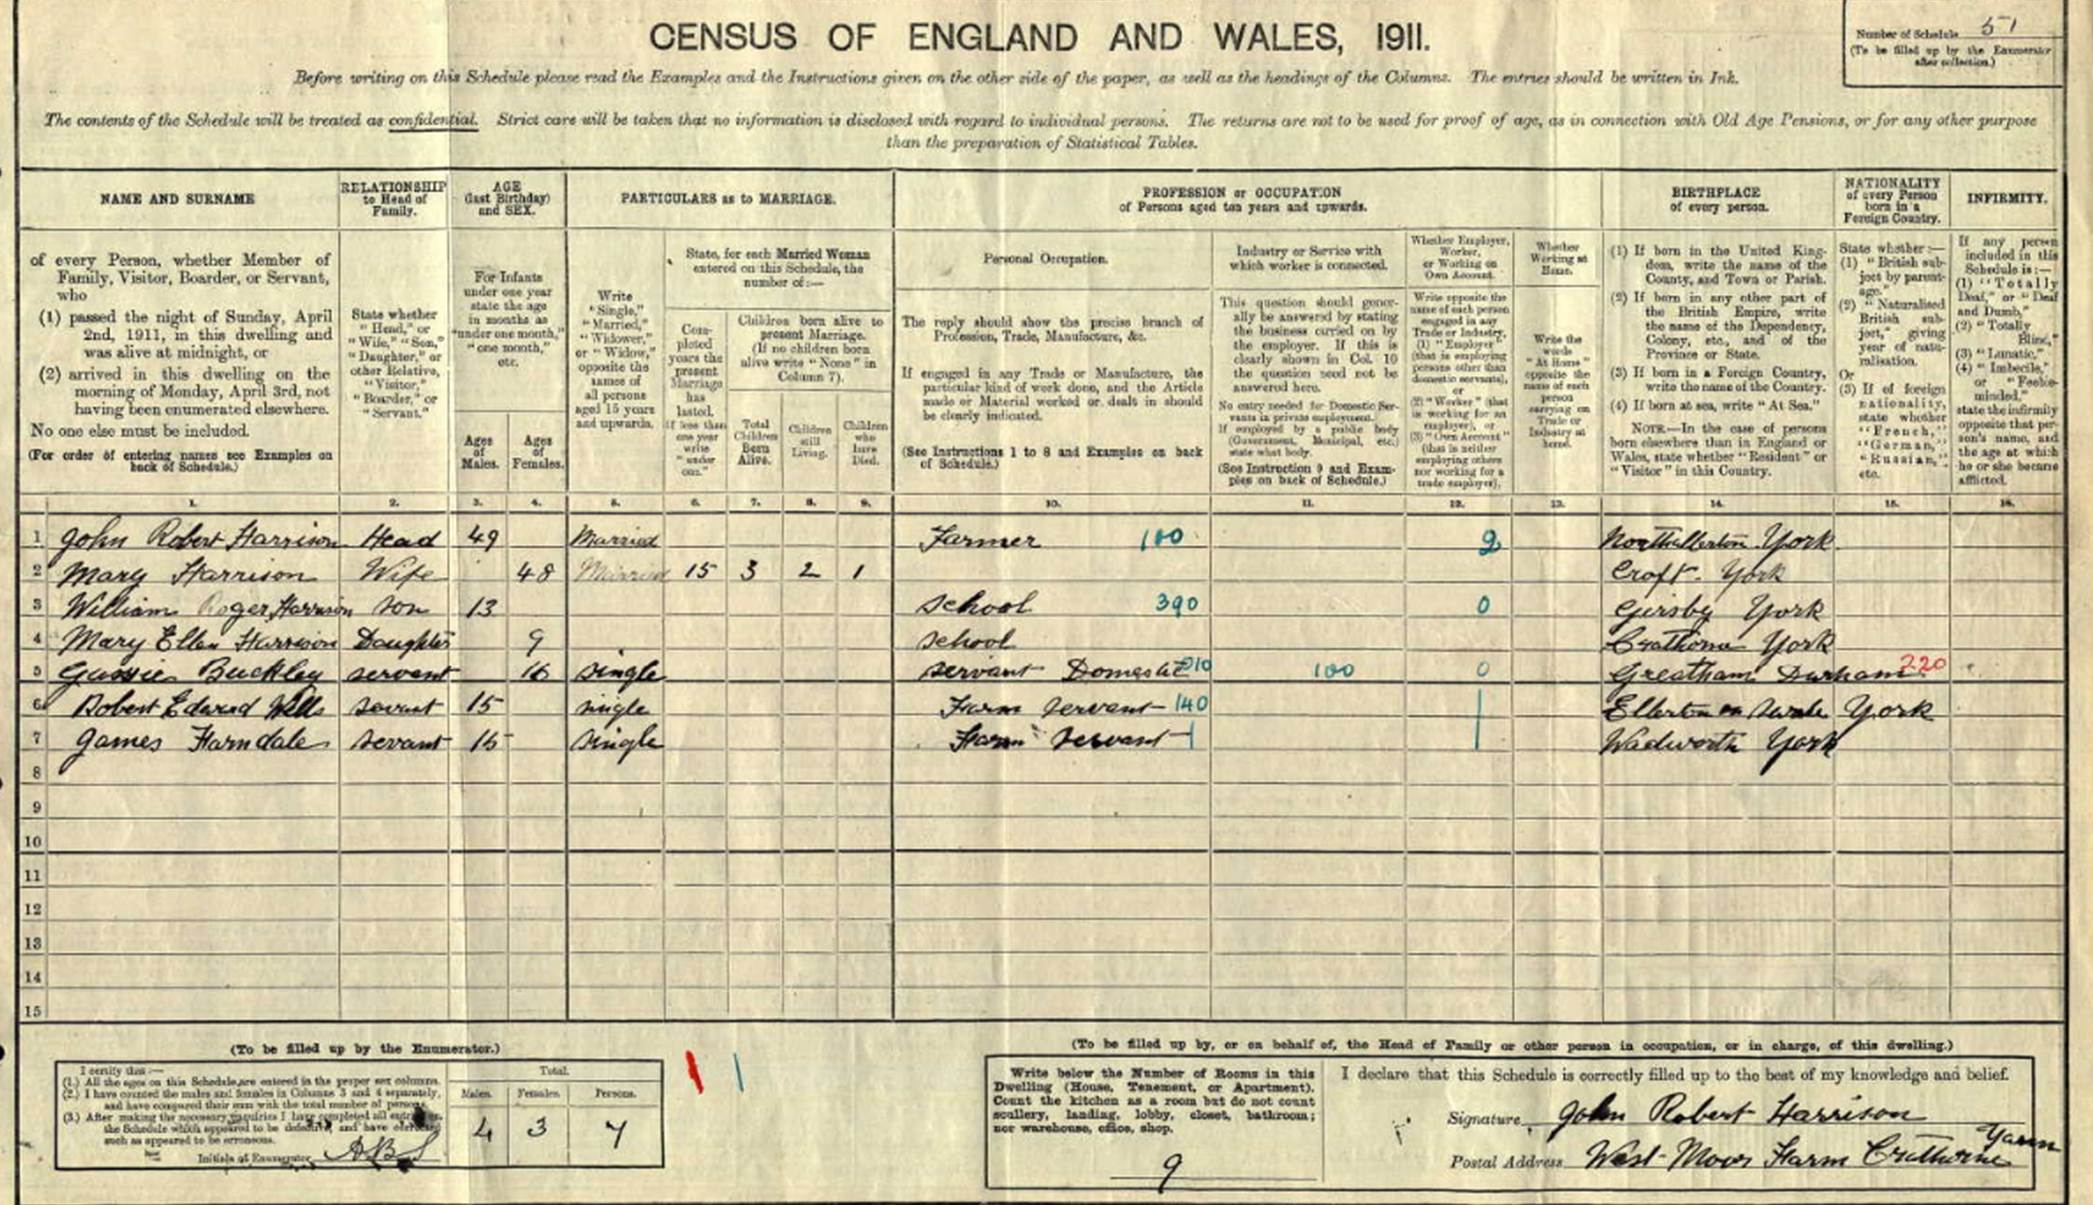 CENSUS OF ENGLAND AND WALES, 1911.
Number of Schedule 51
(To be filled up by the Enumerator
after collection.)
Before writing on this Schedule please read the Examples and the Instructions given on the other side of the paper, as well as the headings of the Columns. The entries should be written in Ink.
The contents of the Schedule will be treated as confidential. Strict care will be taken that no information is disclosed with regard to individual persons. The returns are not to be used for proof of age, as in connection with Old Age Pensions, or for any other purpose
than the preparation of Statistical Tables.
NAME AND SURNAME
of every Person, whether Member of
Family, Visitor, Boarder, or Servant,
who
(1) passed the night of Sunday, April
2nd, 1911, in this dwelling and
was alive at midnight, or
(2) arrived in this dwelling on the
morning of Monday, April 3rd, not
having been enumerated elsewhere.
No one else must be included.
(For order of entering names see Examples on
back of Schedule.)
RELATIONSHIP
to Head of
Family.
State whether
"Head," or
"Wife," "Son,"
"Daughter," or
other Relative,
"Visitor,"
"Boarder," or
"Servant."
AGE
(last Birthday)
and SEX.
For Infants
under one year
state the age
in months as
"under one month,"
"one month,"
etc.
Ages
of
Males.
Ages
of
Females.
PARTICULARS as to MARRIAGE.
Write
"Single,"
"Married,"
"Widower,"
or "Widow,"
opposite the
names of
all persons
aged 15 years
and upwards.
State, for each Married Woman
entered on this Schedule, the
number of:—
Completed
years the
present
Marriage
has
lasted.
If less than
one year
write
"under
one."
Children born alive to
present Marriage.
(If no children born
alive write "None" in
Column 7).
Total
Children
Born
Alive.
Children
still
Living.
Children
who
have
Died.
PROFESSION or OCCUPATION
of Persons aged ten years and upwards.
Personal Occupation.
The reply should show the precise branch of
Profession, Trade, Manufacture, &c.
If engaged in any Trade or Manufacture, the
particular kind of work done, and the Article
made or Material worked or dealt in should
be clearly indicated.
(See Instructions 1 to 8 and Examples on back
of Schedule.)
Industry or Service with
which worker is connected.
This question should gener-
ally be answered by stating
the business carried on by
the employer. If this is
clearly shown in Col. 10
the question need not be
answered here.
No entry needed for Domestic Ser-
vants in private employment.
If employed by a public body
(Government, Municipal, etc.)
state what body.
(See Instruction 9 and Exam-
ples on back of Schedule.)
Whether Employer,
Worker,
or Working on
Own Account.
Write opposite the
name of each person
engaged in any
Trade or Industry,
(1) "Employer"
(that is employing
persons other than
domestic servants),
or
(2) "Worker" (that
is working for an
employer), or
(3) "Own Account"
(that is neither
employing others
nor working for a
trade employer).
Whether
Working at
Home.
Write the
words
"At Home"
opposite the
name of each
person
carrying on
Trade or
Industry at
home.
BIRTHPLACE
of every person.
(1) If born in the United King-
dom, write the name of the
County, and Town or Parish.
(2) If born in any other part of
the British Empire, write
the name of the Dependency,
Colony, etc., and of the
Province or State.
(3) If born in a Foreign Country,
write the name of the Country.
(4) If born at sea, write "At Sea."
NOTE.—In the case of persons
born elsewhere than in England or
Wales, state whether "Resident" or
"Visitor" in this Country.
NATIONALITY
of every Person
born in a
Foreign Country.
State whether:—
(1) "British sub-
ject by parent-
age."
(2) "Naturalised
British sub-
ject," giving
year of natu-
ralisation.
Or
(3) If of foreign
nationality,
state whether
"French,"
"German,"
"Russian,"
etc.
INFIRMITY.
If any person
included in this
Schedule is:—
(1) "Totally
Deaf," or "Deaf
and Dumb,"
(2) "Totally
Blind,"
(3) "Lunatic,"
(4) "Imbecile,"
or "Feeble-
minded,"
state the infirmity
opposite that per-
son's name, and
the age at which
he or she became
afflicted.
1. 2. 3. 4. 5. 6. 7. 8. 9. 10. 11. 12. 13. 14. 15. 16.
1 John Robert Harrison Head 49 Married Farmer 100 2 Northallerton York
2 Mary Harrison Wife 48 Married 15 3 2 1 Croft York
3 William Roger Harrison son 13 school 390 0 Girsby York
4 Mary Ellen Harrison Daughter 9 school Crathorne York
5 Buckley servant 16 single servant Domestic 010 100 0 Greatham Durham 220
6 Robert Edward Wells servant 15 single Farm servant 140 Ellerton on Swale York
7 James Farndale servant 15 single Farm servant Wadworth York
8
9
10
11
12
13
14
15
(To be filled up by the Enumerator.)
I certify that:—
(1.) All the ages on this Schedule are entered in the proper sex columns.
(2.) I have counted the males and females in Columns 3 and 4 separately,
and have compared their sum with the total number of persons.
(3.) After making the necessary enquiries I have completed all entries on
the Schedule which appeared to be defective, and have corrected
such as appeared to be erroneous.
Initials of Enumerator
Total.
Males. Females. Persons.
4 3 7
(To be filled up by, or on behalf of, the Head of Family or other person in occupation, or in charge, of this dwelling.)
Write below the Number of Rooms in this
Dwelling (House, Tenement, or Apartment).
Count the kitchen as a room but do not count
scullery, landing, lobby, closet, bathroom;
nor warehouse, office, shop.
9
I declare that this Schedule is correctly filled up to the best of my knowledge and belief.
Signature John Robert Harrison
Postal Address West Moor Farm Crathorne Yarm